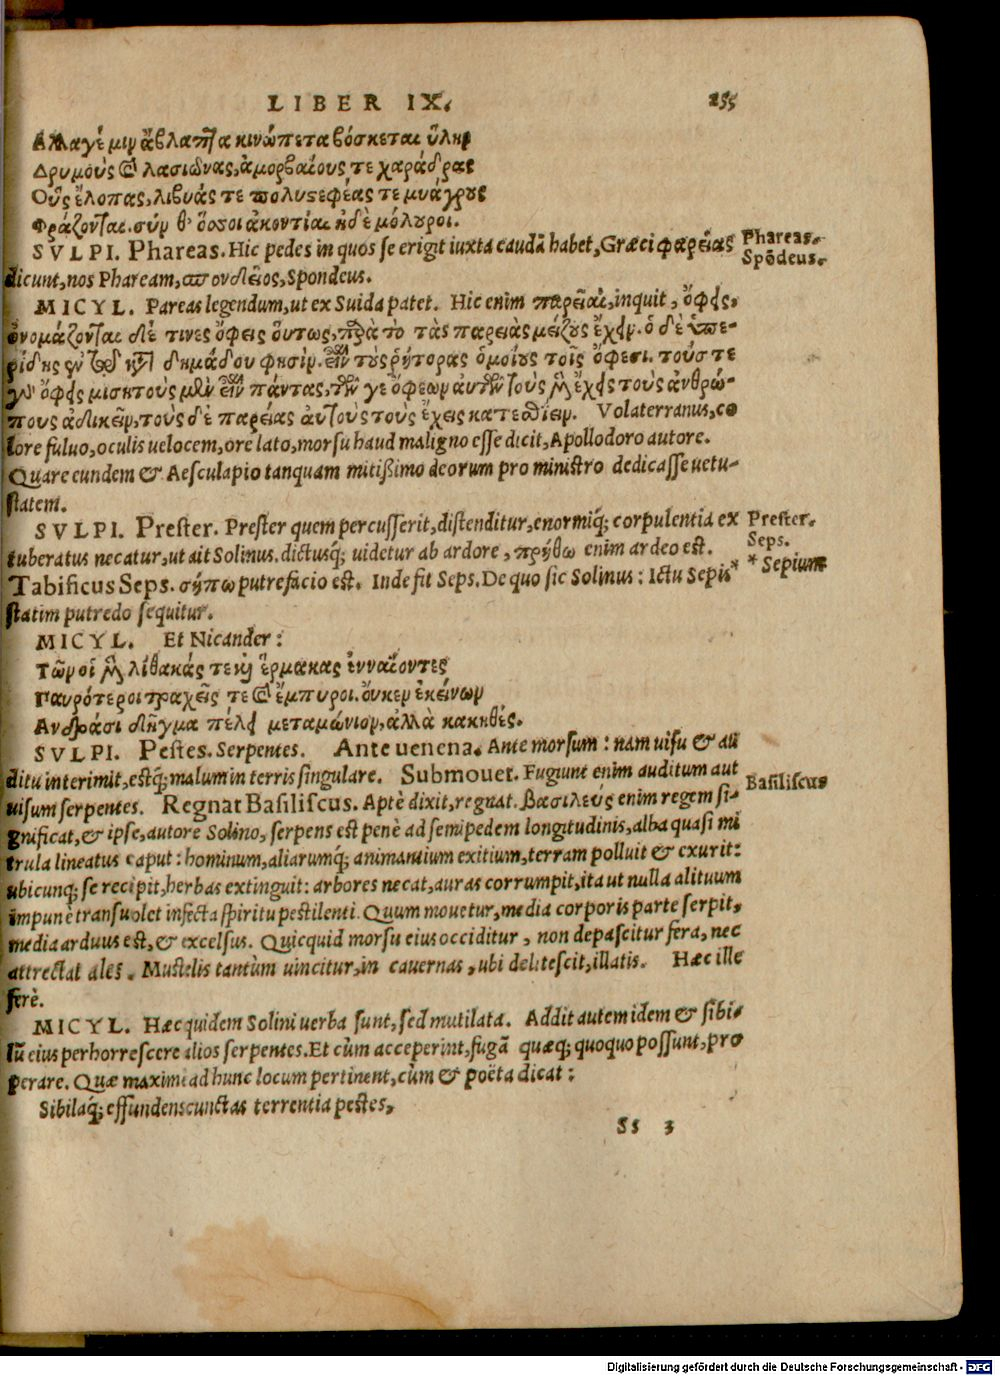 LIBER IX. 255
Ἀλλαγέ μιν ἄβλαπτα κινώπετα βόσκεται ὕλην
Δρυμοὺς & λασιῶνας, ἀμορβαίους τε χαράδρας
Οὓς ἔλοπας, λιβυάς τε πολυστεφέας τε μυάγρους
Φράζονται. σύν θ' ὅσσοι ἀκοντίαι ἠδὲ μόλουροι.
SVLPI. Phareas. Hic pedes in quos se erigit iuxta caudā habet, Græci φαρείας
Phareas.
dicunt, nos Phaream, σπονδεῖος, Spondeus.
Spōdeus.
MICYL. Pareas legendum, ut ex Suida patet. Hic enim παρεῖαι, inquit, ὄφεις,
ὀνομάζονται δέ τινες ὄφεις οὕτως, παρὰ τὸ τὰς παρειὰς μείζους ἔχειν. ὁ δὲ ὑπε-
ρίδης ἐν τῷ κατὰ δημάδου φησίν. εἶναι τοὺς ῥήτορας ὁμοίους τοῖς ὄφεσι. τούς τε
γὰρ ὄφεις μισητοὺς μὲν εἶναι πάντας, τῶν γε ὄφεων αὐτῶν τοὺς μὲν ἔχεις τοὺς ἀνθρώ-
πους ἀδικεῖν, τοὺς δὲ παρείας αὐτοὺς τοὺς ἔχεις κατεσθίειν. Volaterranus, co
lore fuluo, oculis uelocem, ore lato, morsu haud maligno esse dicit, Apollodoro autore.
Quare eundem & Aesculapio tanquam mitißimo deorum pro ministro dedicasse uetu-
statem.
SVLPI. Prester. Prester quem percusserit, distenditur, enormiq; corpulentia ex
Prester.
tuberatus necatur, ut ait Solinus. dictusq; uidetur ab ardore, πρήθω enim ardeo est.
Seps.
Tabificus Seps. σήπω putrefacio est. Inde fit Seps. De quo sic Solinus: Ictu Sepis*
* Sepium
statim putredo sequitur.
MICYL. Et Nicander:
Τῶν οἱ μὲν λίθακάς τε καὶ ἕρμακας ἐνναίοντες
Παυρότεροι τραχεῖς τε & ἔμπυροι. οὔκεν ἐκείνων
Ανδράσι δῆγμα πέλει μεταμώνιον, ἀλλὰ κακηθές.
SVLPI. Pestes. Serpentes. Ante uenena. Ante morsum: nam uisu & au
ditu interimit, estq; malum in terris singulare. Submouet. Fugiunt enim auditum aut
Basiliscus
uisum serpentes. Regnat Basiliscus. Aptè dixit, regnat. βασιλεύς enim regem si-
gnificat, & ipse, autore Solino, serpens est penè ad semipedem longitudinis, alba quasi mi
trula lineatus caput: hominum, aliarumq; animantium exitium, terram polluit & exurit:
ubicunq; se recipit, herbas extinguit: arbores necat, auras corrumpit, ita ut nulla alituum
impunè transuolet infecta spiritu pestilenti. Quum mouetur, media corporis parte serpit,
media arduus est, & excelsus. Quicquid morsu eius occiditur, non depascitur fera, nec
attrectat ales. Mustelis tantùm uincitur, in cauernas, ubi delitescit, illatis. Hæc ille
ferè.
MICYL. Hæc quidem Solini uerba sunt, sed mutilata. Addit autem idem & sibi-
lū eius perhorrescere alios serpentes. Et cùm acceperint, fugā quæq; quoquo possunt, pro
perare. Quæ maxime ad hunc locum pertinent, cùm & poëta dicat:
Sibilaq; effundens cunctas terrentia pestes,
Ss 3
Digitalisierung gefördert durch die Deutsche Forschungsgemeinschaft - DFG